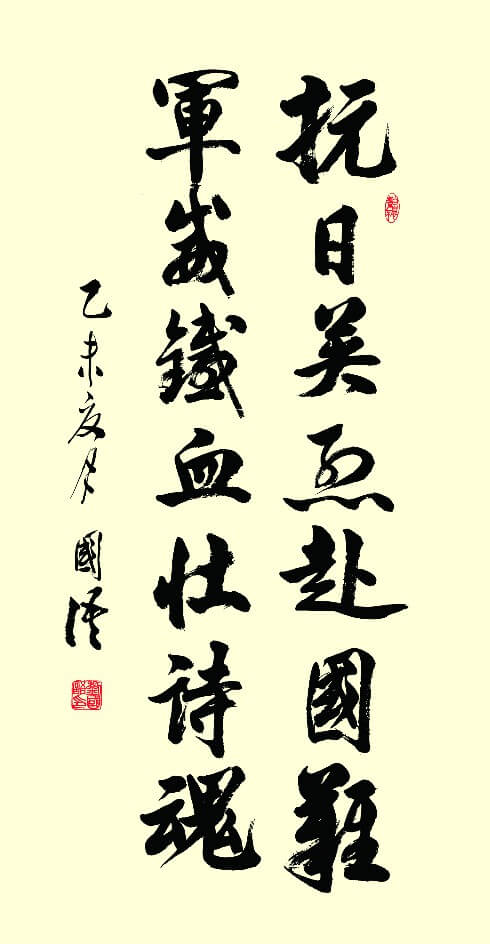 抗日英烈赴國難
軍威鐵血壯詩魂
乙未夏月 國